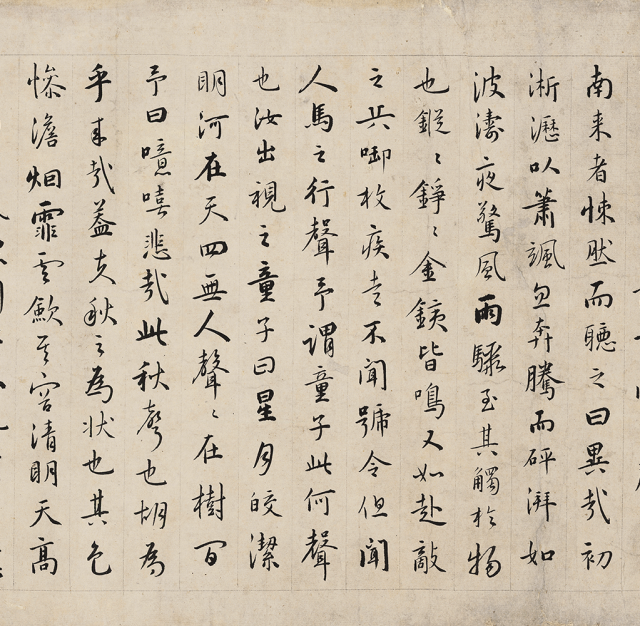 南来者悚然而聽之曰異哉初
淅瀝以蕭颯忽奔騰而砰湃如
波濤夜驚風雨驟至其觸於物
也鏦〻錚〻金鐵皆鳴又如赴敵
之兵啣枚疾走不聞號令但聞
人馬之行聲予謂童子此何聲
也汝出視之童子曰星月皎潔
明河在天四無人聲〻在樹間
予曰噫嘻悲哉此秋聲也胡為
乎来哉蓋夫秋之為状也其色
慘澹烟霏雲歛其容清明天高